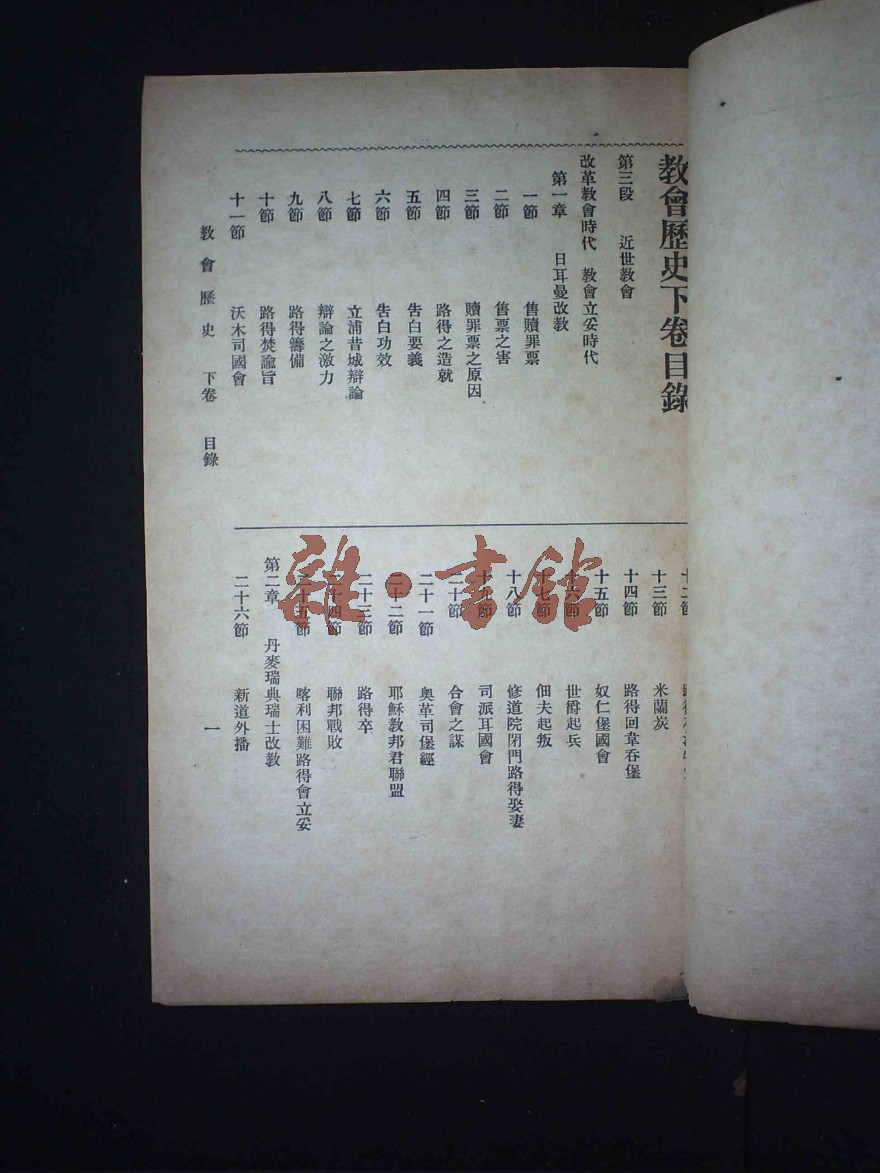 教會歷史下卷目錄
第三段 近世教會
改革教會時代 教會立妥時代
第一章 日耳曼改教
一節 售贖罪票
二節 售票之害
三節 贖罪票之原因
四節 路得之造就
五節 告白要義
六節 告白功效
七節 立浦昔城辯論
八節 辯論之激力
九節 路得籌備
十節 路得焚諭旨
十一節 沃木司國會
十三節 米蘭炭
十四節 路得回韋吞堡
十五節 奴仁堡國會
十六節 世爵起兵
十七節 佃夫起叛
十八節 修道院閉門路得娶妻
十九節 司派耳國會
二十節 合會之謀
二十一節 奧革司堡經
二十二節 耶穌教邦君聯盟
二十三節 路得卒
二十四節 聯邦戰敗
二十五節 喀利困難路得會立妥
第二章 丹麥瑞典瑞士改教
二十六節 新道外播
教會歷史 下卷 目錄 一
雜·書館